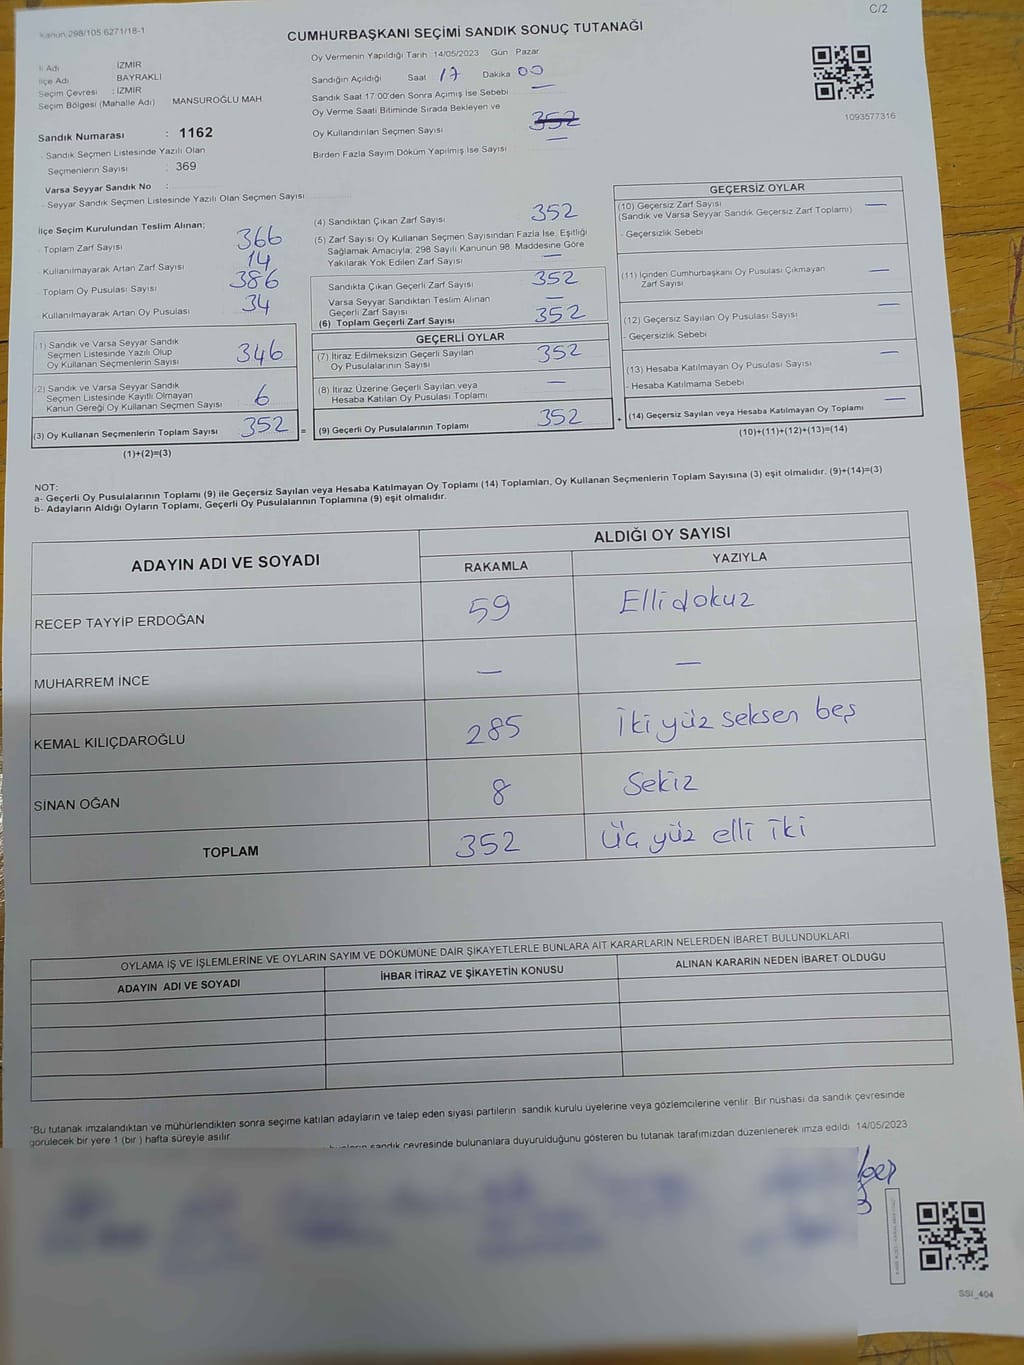 Kanun 298/105 6271/18-1
C/2
CUMHURBAŞKANI SEÇİMİ SANDIK SONUÇ TUTANAĞI
İl Adı İZMİR
İlçe Adı BAYRAKLI
Seçim Çevresi : İZMİR
Seçim Bölgesi (Mahalle Adı) MANSUROĞLU MAH.
Sandık Numarası : 1162
Sandık Seçmen Listesinde Yazılı Olan
Seçmenlerin Sayısı : 369
Varsa Seyyar Sandık No :
- Seyyar Sandık Seçmen Listesinde Yazılı Olan Seçmen Sayısı
Oy Vermenin Yapıldığı Tarih 14/05/2023 Gün Pazar
Sandığın Açıldığı Saat 17 Dakika 00
Sandık Saat 17:00'den Sonra Açımış İse Sebebi —
Oy Verme Saati Bitiminde Sırada Bekleyen ve
Oy Kullandırılan Seçmen Sayısı 352 —
Birden Fazla Sayım Döküm Yapılmış İse Sayısı
1093577316
İlçe Seçim Kurulundan Teslim Alınan;
- Toplam Zarf Sayısı 366
- Kullanılmayarak Artan Zarf Sayısı 14
- Toplam Oy Pusulası Sayısı 386
- Kullanılmayarak Artan Oy Pusulası 34
(1) Sandık ve Varsa Seyyar Sandık
Seçmen Listesinde Yazılı Olup
Oy Kullanan Seçmenlerin Sayısı 346
(2) Sandık ve Varsa Seyyar Sandık
Seçmen Listesinde Kayıtlı Olmayan
Kanun Gereği Oy Kullanan Seçmen Sayısı 6
(3) Oy Kullanan Seçmenlerin Toplam Sayısı 352 =
(1)+(2)=(3)
(4) Sandıktan Çıkan Zarf Sayısı 352
(5) Zarf Sayısı Oy Kullanan Seçmen Sayısından Fazla İse, Eşitliği
Sağlamak Amacıyla, 298 Sayılı Kanunun 98. Maddesine Göre
Yakılarak Yok Edilen Zarf Sayısı —
Sandıkta Çıkan Geçerli Zarf Sayısı 352
Varsa Seyyar Sandıktan Teslim Alınan
Geçerli Zarf Sayısı —
(6) Toplam Geçerli Zarf Sayısı 352
GEÇERLİ OYLAR
(7) İtiraz Edilmeksizin Geçerli Sayılan
Oy Pusulalarının Sayısı 352
(8) İtiraz Üzerine Geçerli Sayılan veya
Hesaba Katılan Oy Pusulası Toplamı —
(9) Geçerli Oy Pusulalarının Toplamı 352 +
GEÇERSİZ OYLAR
(10) Geçersiz Zarf Sayısı —
(Sandık ve Varsa Seyyar Sandık Geçersiz Zarf Toplamı)
- Geçersizlik Sebebi
(11) İçinden Cumhurbaşkanı Oy Pusulası Çıkmayan
Zarf Sayısı —
(12) Geçersiz Sayılan Oy Pusulası Sayısı —
- Geçersizlik Sebebi
(13) Hesaba Katılmayan Oy Pusulası Sayısı —
- Hesaba Katılmama Sebebi
(14) Geçersiz Sayılan veya Hesaba Katılmayan Oy Toplamı —
(10)+(11)+(12)+(13)=(14)
NOT:
a- Geçerli Oy Pusulalarının Toplamı (9) ile Geçersiz Sayılan veya Hesaba Katılmayan Oy Toplamı (14) Toplamları, Oy Kullanan Seçmenlerin Toplam Sayısına (3) eşit olmalıdır. (9)+(14)=(3)
b- Adayların Aldığı Oyların Toplamı, Geçerli Oy Pusulalarının Toplamına (9) eşit olmalıdır.
ADAYIN ADI VE SOYADI ALDIĞI OY SAYISI
RAKAMLA YAZIYLA
RECEP TAYYİP ERDOĞAN 59 Elli dokuz
MUHARREM İNCE — —
KEMAL KILIÇDAROĞLU 285 İki yüz seksen beş
SİNAN OĞAN 8 Sekiz
TOPLAM 352 Üç yüz elli iki
OYLAMA İŞ VE İŞLEMLERİNE VE OYLARIN SAYIM VE DÖKÜMÜNE DAİR ŞİKAYETLERLE BUNLARA AİT KARARLARIN NELERDEN İBARET BULUNDUKLARI
ADAYIN ADI VE SOYADI İHBAR İTİRAZ VE ŞİKAYETİN KONUSU ALINAN KARARIN NEDEN İBARET OLDUĞU
"Bu tutanak imzalandıktan ve mühürlendikten sonra seçime katılan adayların ve talep eden siyasi partilerin sandık kurulu üyelerine veya gözlemcilerine verilir. Bir nüshası da sandık çevresinde
görülecek bir yere 1 (bir) hafta süreyle asılır.
sandık çevresinde bulunanlara duyurulduğunu gösteren bu tutanak tarafımızdan düzenlenerek imza edildi. 14/05/2023
SSI_404